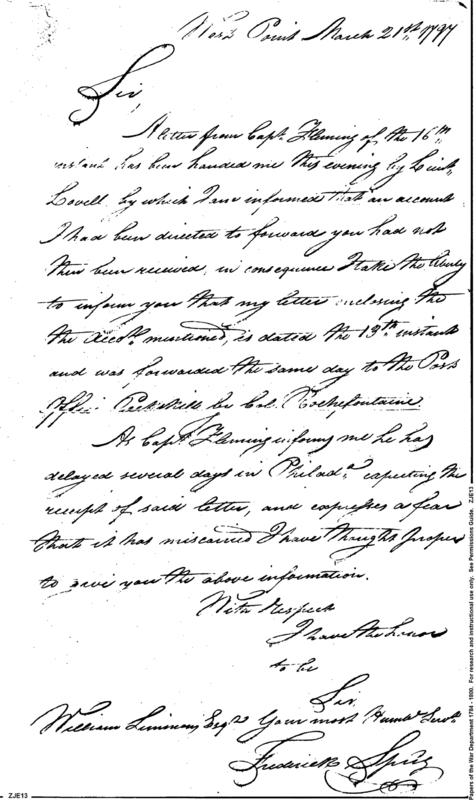 West Point March 21st 1797
Sir,
A letter from Capt. Fleming of the 16th
instant has been handed me this evening by Lieut.
Lovell by which I am informed that an account
I had been directed to forward you had not
then been received, in consequence I take the liberty
to inform you that my letter enclosing the
the Acct. mentioned, is dated the 13th instant
and was forwarded the same day to the Post
Office Peekskill by Col. Rochefontaine
As Capt. Fleming informs me he has
delayed several days in Philada. expecting the
receipt of said letter, and expresses a fear
that it has miscarried I have thought proper
to give you the above information.
With Respect
I have the honor
to be
Sir
William Simmons, Esqr. Your most Humbl Servt.
Frederick
ZJE13
Papers of the War Department 1784 - 1800. For research and instructional use only. See Permissions Guide. ZJE13